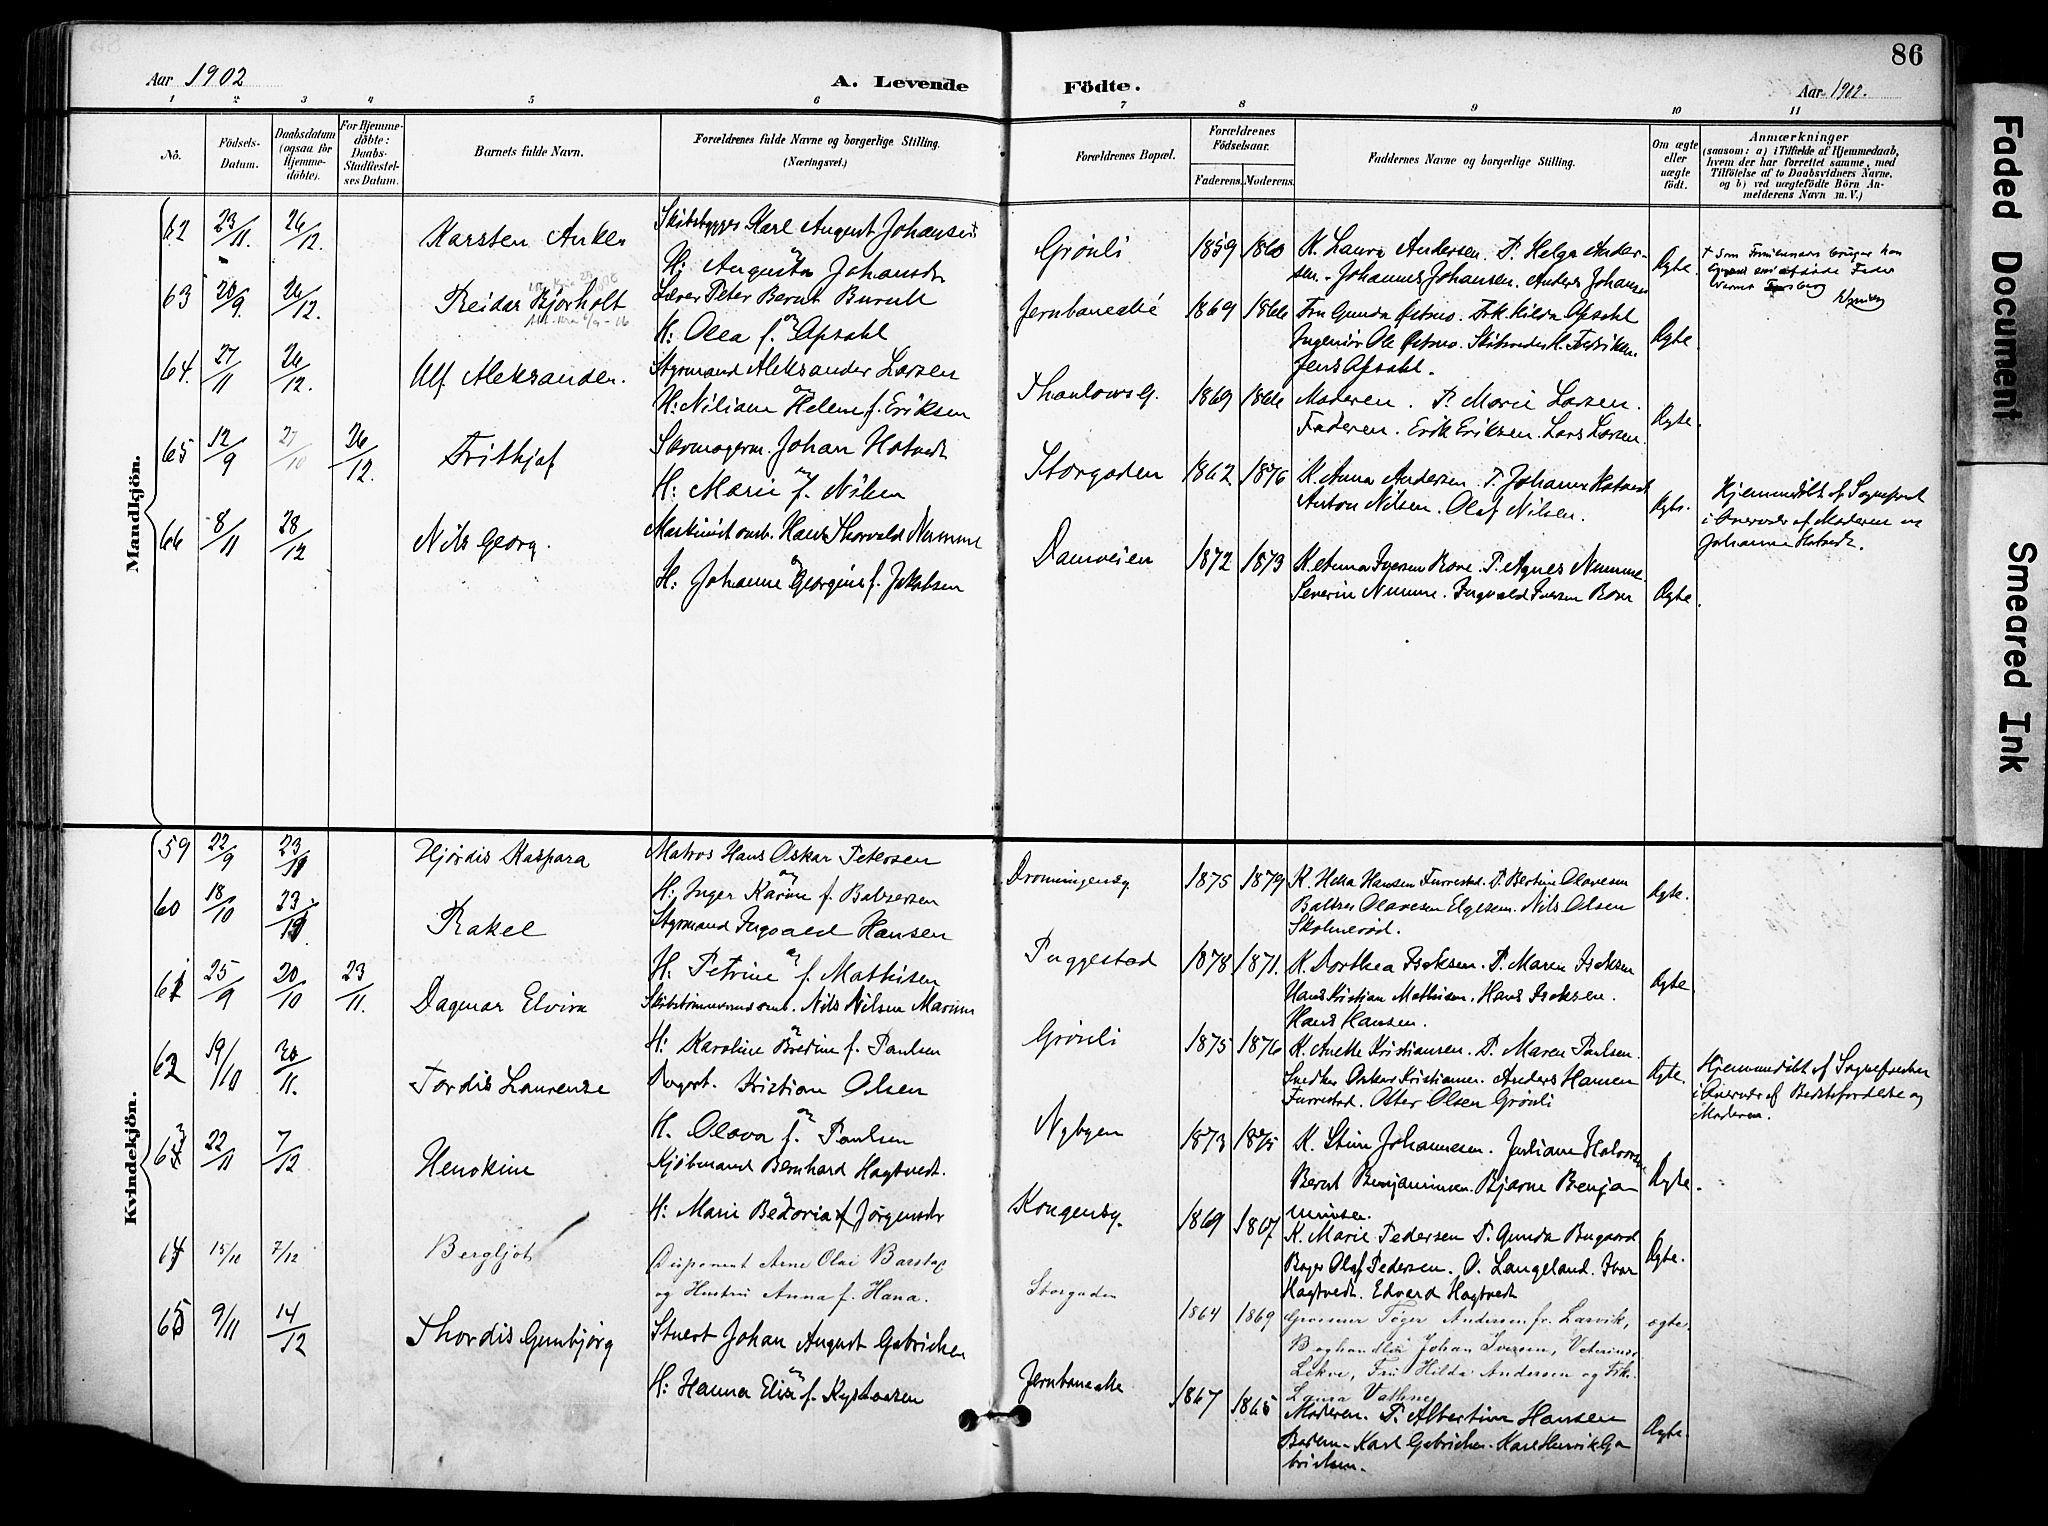 86
Aar 1902
A. Levende Födte.
Aar 1902.
1 2 3 4 5 6 7 8 9 10 11
No.
Födsels-Datum.
Daabsdatum (ogsaa for Hjemme-döbte).
For Hjemme-döbte: Daabs-Stadfæstel-ses Datum.
Barnets fulde Navn.
Forældrenes fulde Navne og borgerlige Stilling. (Næringsvei.)
Forældrenes Bopæl.
Forældrenes Födselsaar.
Faderens. Moderens.
Faddernes Navne og borgerlige Stilling.
Om ægte eller uægte födt.
Anmærkninger
(saasom: a) i Tilfælde af Hjemmedaab, hvem der har forrettet samme, med Tilföielse af to Daabsvidners Navne, og b) ved uægtefödte Börn Anmelderens Navn m. V.)
Mandkjön.
62 23/11. 26/12. Karsten Anker Karl August Johansen
H: Augusta Johansdr
Grønli 1859 1860 K. Laura Andersen. P. Helga Andersen. Johannes Johansen. Anders Johansen Ægte.
63 20/9. 26/12. Reidar Bjørholt Lærer Peter Bernt
H: Olea f. Apsahl
Jernbanealle 1869 1866 Fru Gunda Østmo. Frk. Hilda Apsahl
Ingeniør Ole Østmo. Jens Apsahl. Ægte.
64. 27/11 26/12. Ulf Aleksander. Styrmand Aleksander Larsen
H: Niliane Helene f. Eriksen
Thaulowsg. 1869 1866 Moderen. P. Marie Larsen.
Faderen. Erik Eriksen. Lars Larsen. Ægte.
65 12/9 27/10 26/12. Frithjof Johan Hotvedt
H: Marie f. Nilsen
Storgaden 1862 1876 K. Anna Andersen. P. Johanne Hotvedt
Anton Nilsen. Olaf Nilsen. Ægte.
Hjemmedøbt af Sognepræst
i Overvær af Moderen og
Johanne Hotvedt.
66 8/11 28/12 Nils Georg. Hans Thorvald Numme
H: Johanne Georgine f. Jakobsen
Damveien 1872 1873 K. Anna Iversen Bove. P. Agnes Numme.
Severin Numme. Ingvald Iversen Ægte.
Kvindekjön.
59 22/9 23/11 Hjørdis Kaspara Matros Hans Oskar Petersen
H: Inger Karine f. Baltzersen
Dronningensg. 1875 1879 K. Hella Hansen Furrestad. P. Bertine Olavesen
Baltzer Olavesen Elgesem. Nils Olsen
Skolmerød. Ægte.
60 18/10 23/11 Rakel Styrmand Ingvald Hansen
H: Petrine f. Mathisen
Puggestad 1878 1871. K. Dorthea Isaksen. P. Maren Isaksen
Hans Kristian Mathisen. Hans Isaksen.
Hans Hansen. Ægte
61 25/9 20/10 23/11. Dagmar Elvira Nils Nilsen
H: Karoline Bredine f. Paulsen
Grønli 1875 1876 K. Anette Kristiansen. P. Maren Paulsen.
Snedker Oskar Kristiansen. Anders Hansen
Furrestad. Olsen Grønli Ægte.
Hjemmedøbt af Sognepresten
i Overvær af Bedsteforældre og
Moderen.
62 19/10 30/11. Tordis Laurense Kristian Olsen
H. Olava f. Paulsen
Nybyen 1873 1875 K. Stine Johannesen. Juliane Halvorsen
Bernt Benjaminsen. Bjarne Benjaminsen. Ægte.
63 22/11 7/12 Henokine Kjøbmand Bernhard Hagtvedt.
H: Marie Bedoria f. Jørgensdr
Kongensg. 1869 1867 K. Marie Pedersen P. Gunda Bugaard
Bager Olaf Pedersen. O. Langeland. Ivar
Hagtvedt. Edvard Hagtvedt Ægte.
64 15/10 7/12 Bergljot Disponent Arne Olai Barstad
og Hustru Anna f. Hana.
Storgaden 1864 1869 Grosserer Tøger Andersen fr. Larvik,
Boghandler Johan Iversen, Veterinær
Lekve, Fru Hilda Andersen og Frk.
Laura Vathne ægte.
65 9/11 14/12 Thordis Gunbjørg Stuert Johan August Gabrielsen
H: Hanna Elise f. Rystadsen
Jernbanealle 1867 1865 Moderen. P. Albertine Hansen
Karl Gabrielsen. Karl Henrik Gabrielsen. Ægte.
Faded Document
Smeared Ink